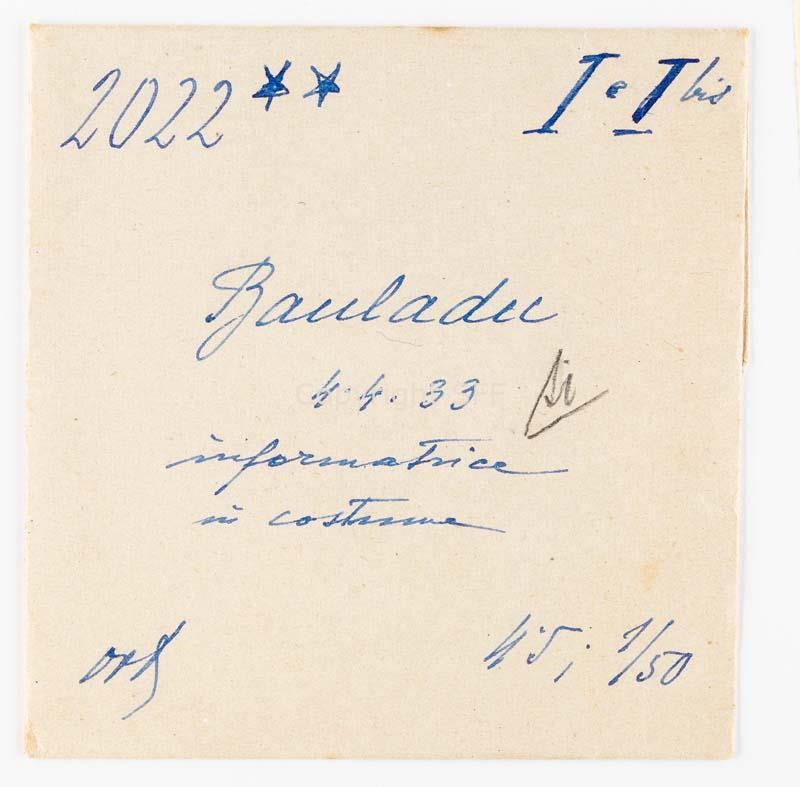 2022 ** I e I bis
Bauladu
4.4.33 Si
informatrice
in costume
ort 4.5; 1/50